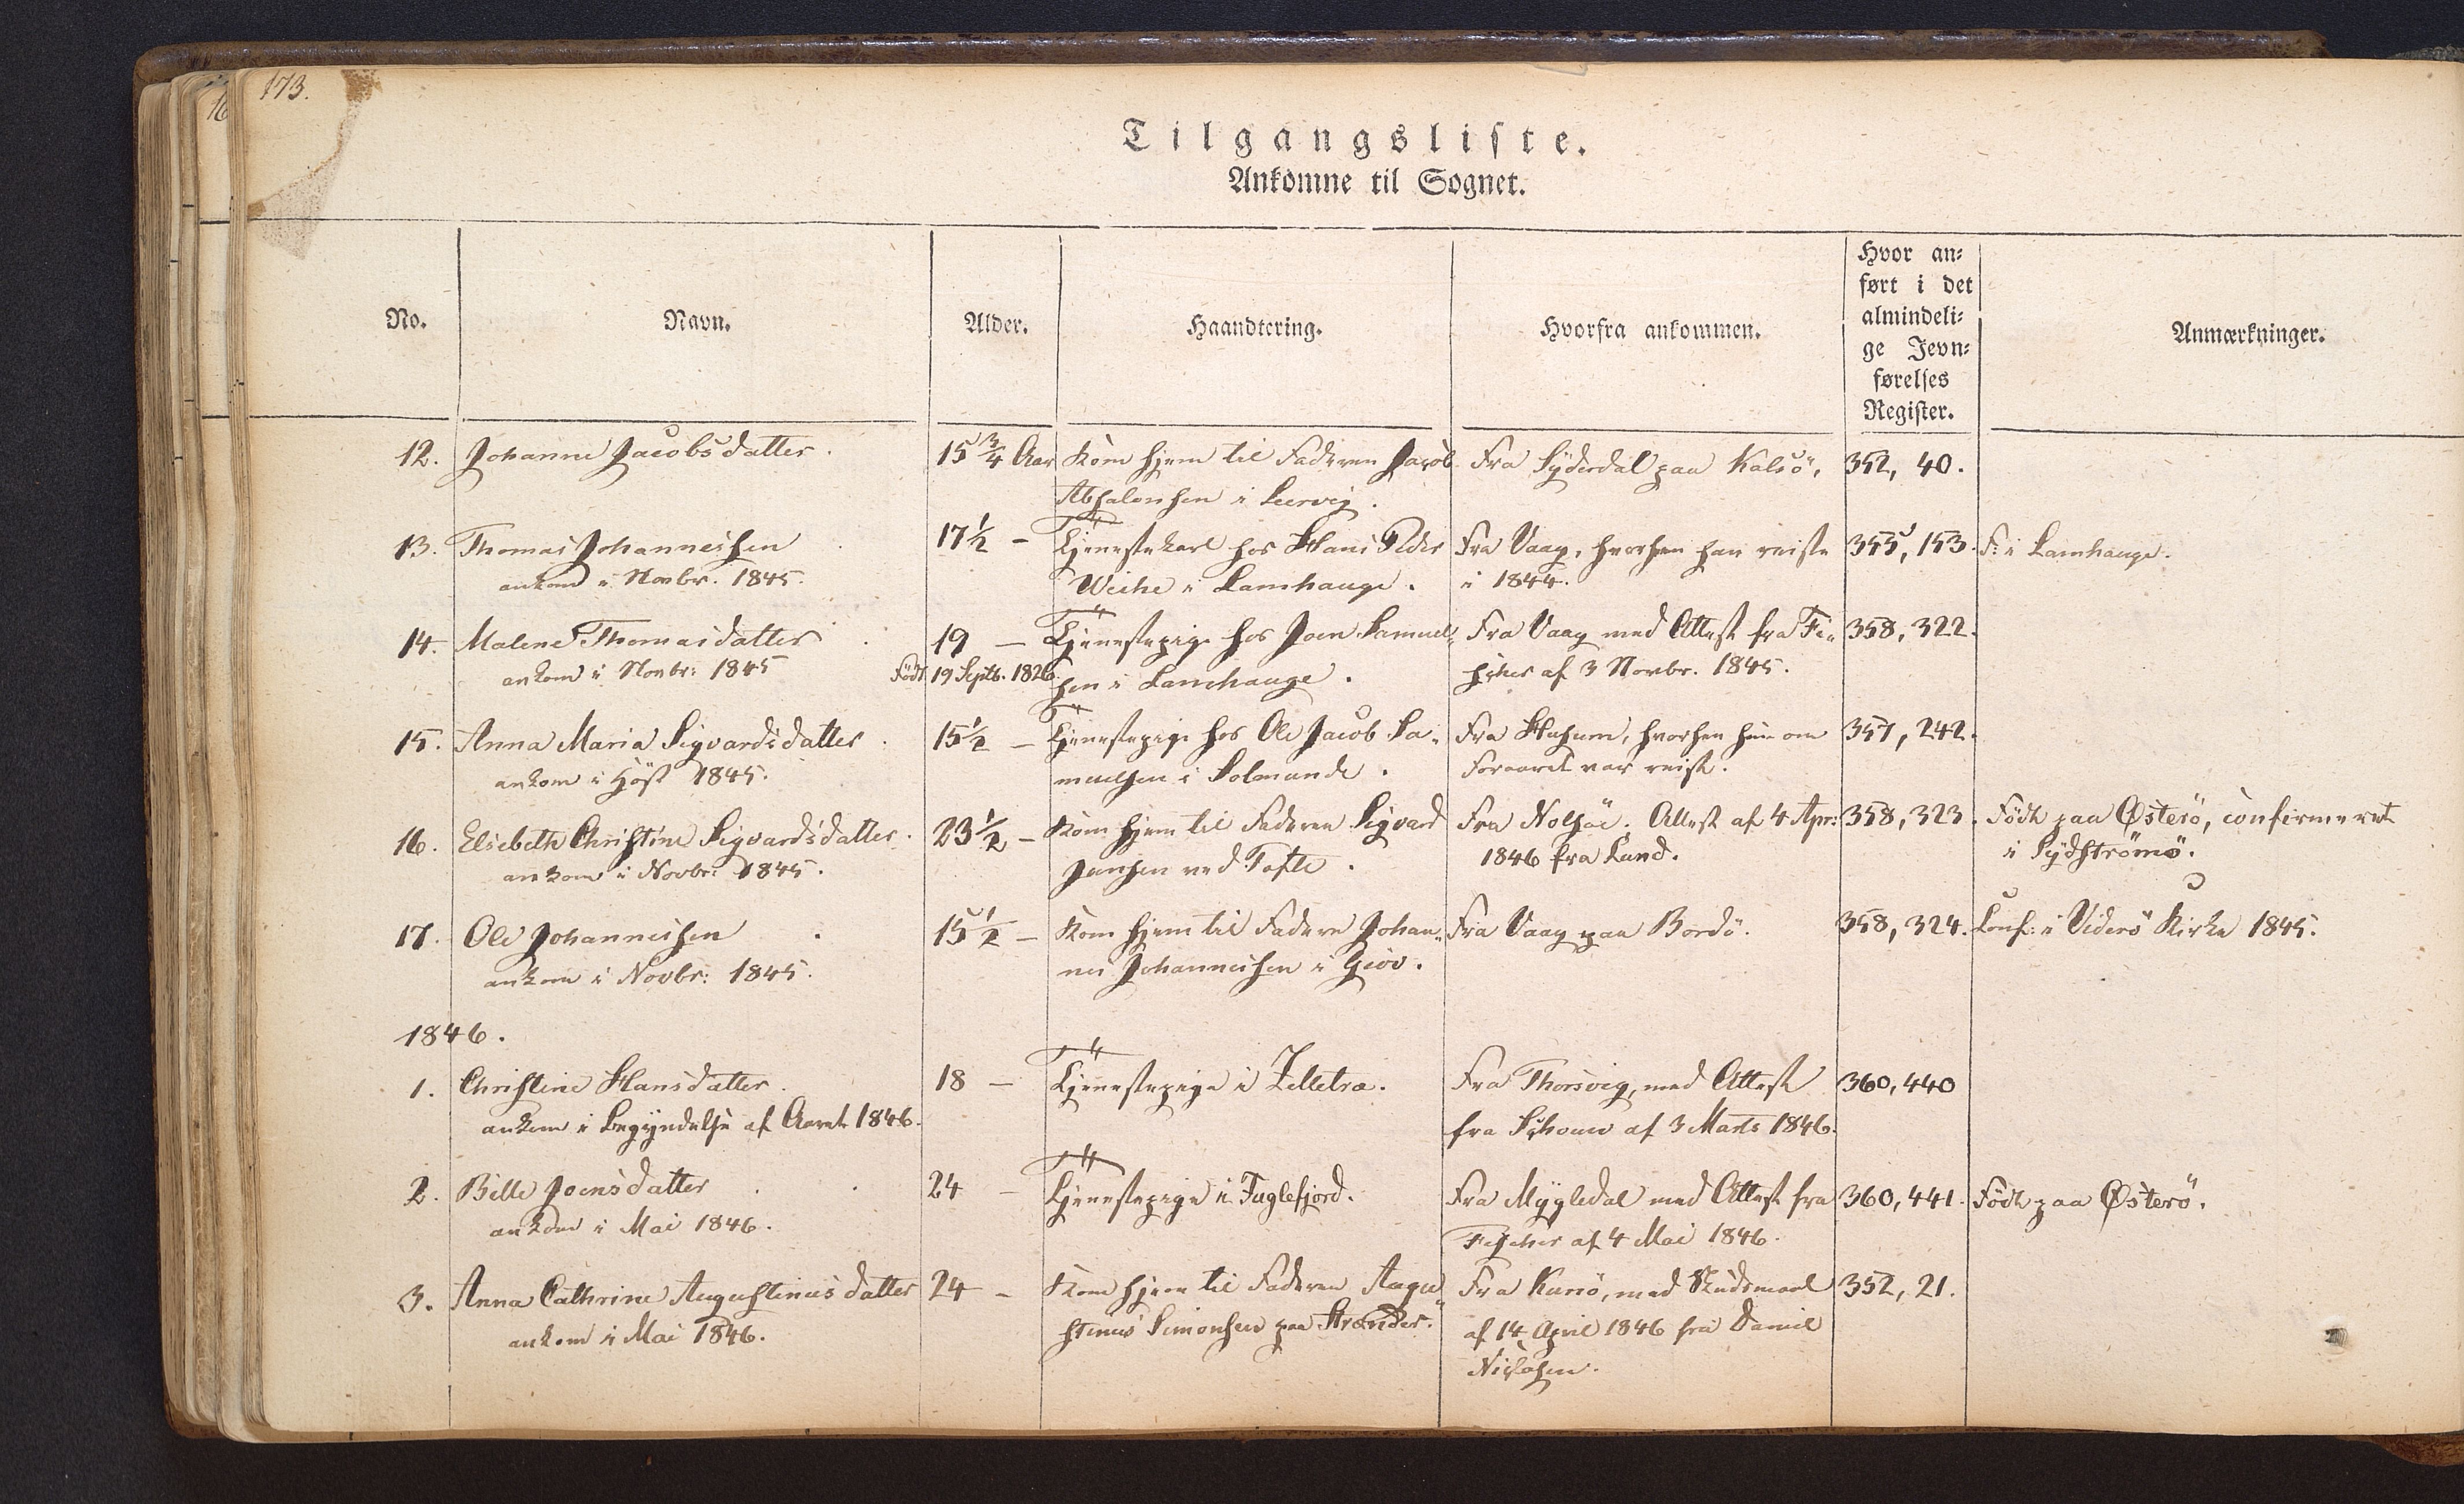 173.
Tilgangsliste.
Ankomne til Sognet.
No.
Navn.
Alder.
Haandtering.
Hvorfra ankommen.
Hvor an-
ført i det
almindeli-
ge Jevn-
førelses
Register.
Anmærkninger.
12. Johanne Jacobsdatter. 15 3/4 Aar Kom hjem til Faderen Jacob Fra Syderdal paa Kalsö, 352, 40.
Absalonsen i Leervig.
13. Thomas Johannessen 17 1/2 – Tjenestekarl hos Hans Peder Fra Vaag, hvorhen han reiste 355, 153. F: i Lamhauge.
ankom i Novbr. 1845. Weihe i Lamhauge. i 1844.
14. Malene Thomasdatter 19 – Tjenestepige hos Joen Samuel- Fra Vaag med Attest fra Fi- 358, 322.
ankom i Novbr: 1845 Födt 19 Septb. 1826 sen i Lamhauge. scher af 3 Novbr. 1845.
15. Anna Maria Sigvardsdatter 15 1/2 – Tjenestepige hos Ole Jacob Sa- Fra Husum, hvorhen hun om 357, 242.
ankom i Höst 1845. muelsen i Solmunde. Foraaret var reist.
16. Elsebeth Christine Sigvardsdatter. 23 1/2 – Kom hjem til Faderen Sigvard Fra Nolsöe. Attest af 4 Apr: 358, 323. Födt paa Österö, confirmeret
ankom i Novbr: 1845. Jansen ved Tofte. 1846 fra Lund. i Sydströmö.
17. Ole Johannessen 15 1/2 – Kom hjem til Faderen Johan- Fra Vaag paa Bordö. 358, 324. Conf: i Viderö Kirke 1845.
ankom i Novbr: 1845. nes Johannessen i Giov.
1846.
1. Christine Hansdatter. 18 – Tjenestepige i Zelletræ. Fra Thorsvig, med Attest 360, 440
ankom i Begyndelse af Aaret 1846. fra Schouw af 3 Marts 1846.
2. Bille Joensdatter 24 – Tjenestepige i Fuglefjord. Fra Mygledal med Attest fra 360, 441. Födt paa Österö.
ankom i Mai 1846. Fischer af 4 Mai 1846.
3. Anna Cathrine Augustinusdatter 24 – Kom hjem til Faderen Augu- Fra Kunö, med Skudsmaal 352, 21.
ankom i Mai 1846. stinus Simonsen paa Strænder. af 14 April 1846 fra Daniel
Niclasen.